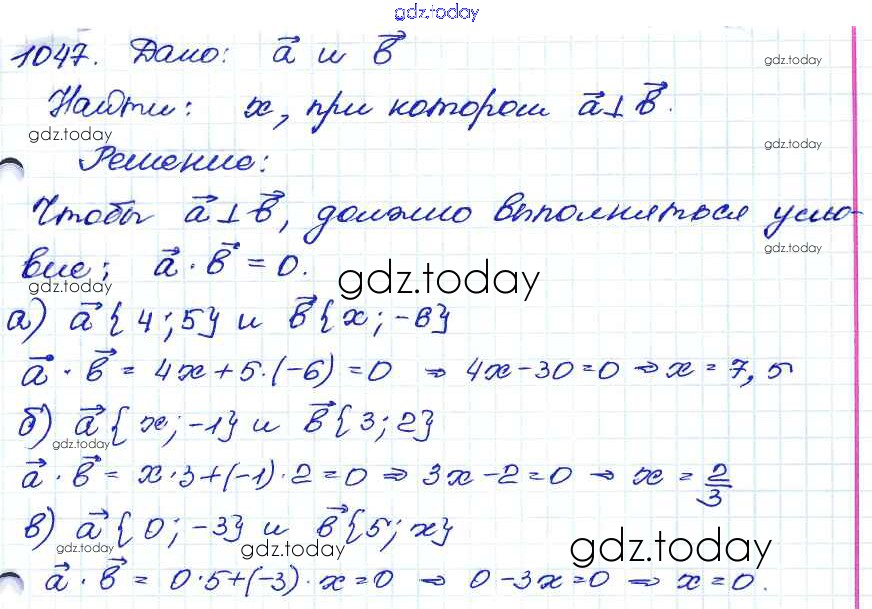 gdz.today
1047. Дано: a⃗ и b⃗
gdz.today
Найти: x, при котором a⃗ ⊥ b⃗.
gdz.today
gdz.today
Решение:
gdz.today
Чтобы a⃗ ⊥ b⃗, должно выполняться усло-
gdz.today
вие: a⃗ · b⃗ = 0.
gdz.today
gdz.today
а) a⃗ {4; 5} и b⃗ {x; -6}
a⃗ · b⃗ = 4x + 5·(-6) = 0 ⇒ 4x - 30 = 0 ⇒ x = 7,5
б) a⃗ {x; -1} и b⃗ {3; 2}
gdz.today
a⃗ · b⃗ = x·3 + (-1)·2 = 0 ⇒ 3x - 2 = 0 ⇒ x = 2/3
в) a⃗ {0; -3} и b⃗ {5; x}
gdz.today
gdz.today
gdz.today
a⃗ · b⃗ = 0·5 + (-3)·x = 0 ⇒ 0 - 3x = 0 ⇒ x = 0.